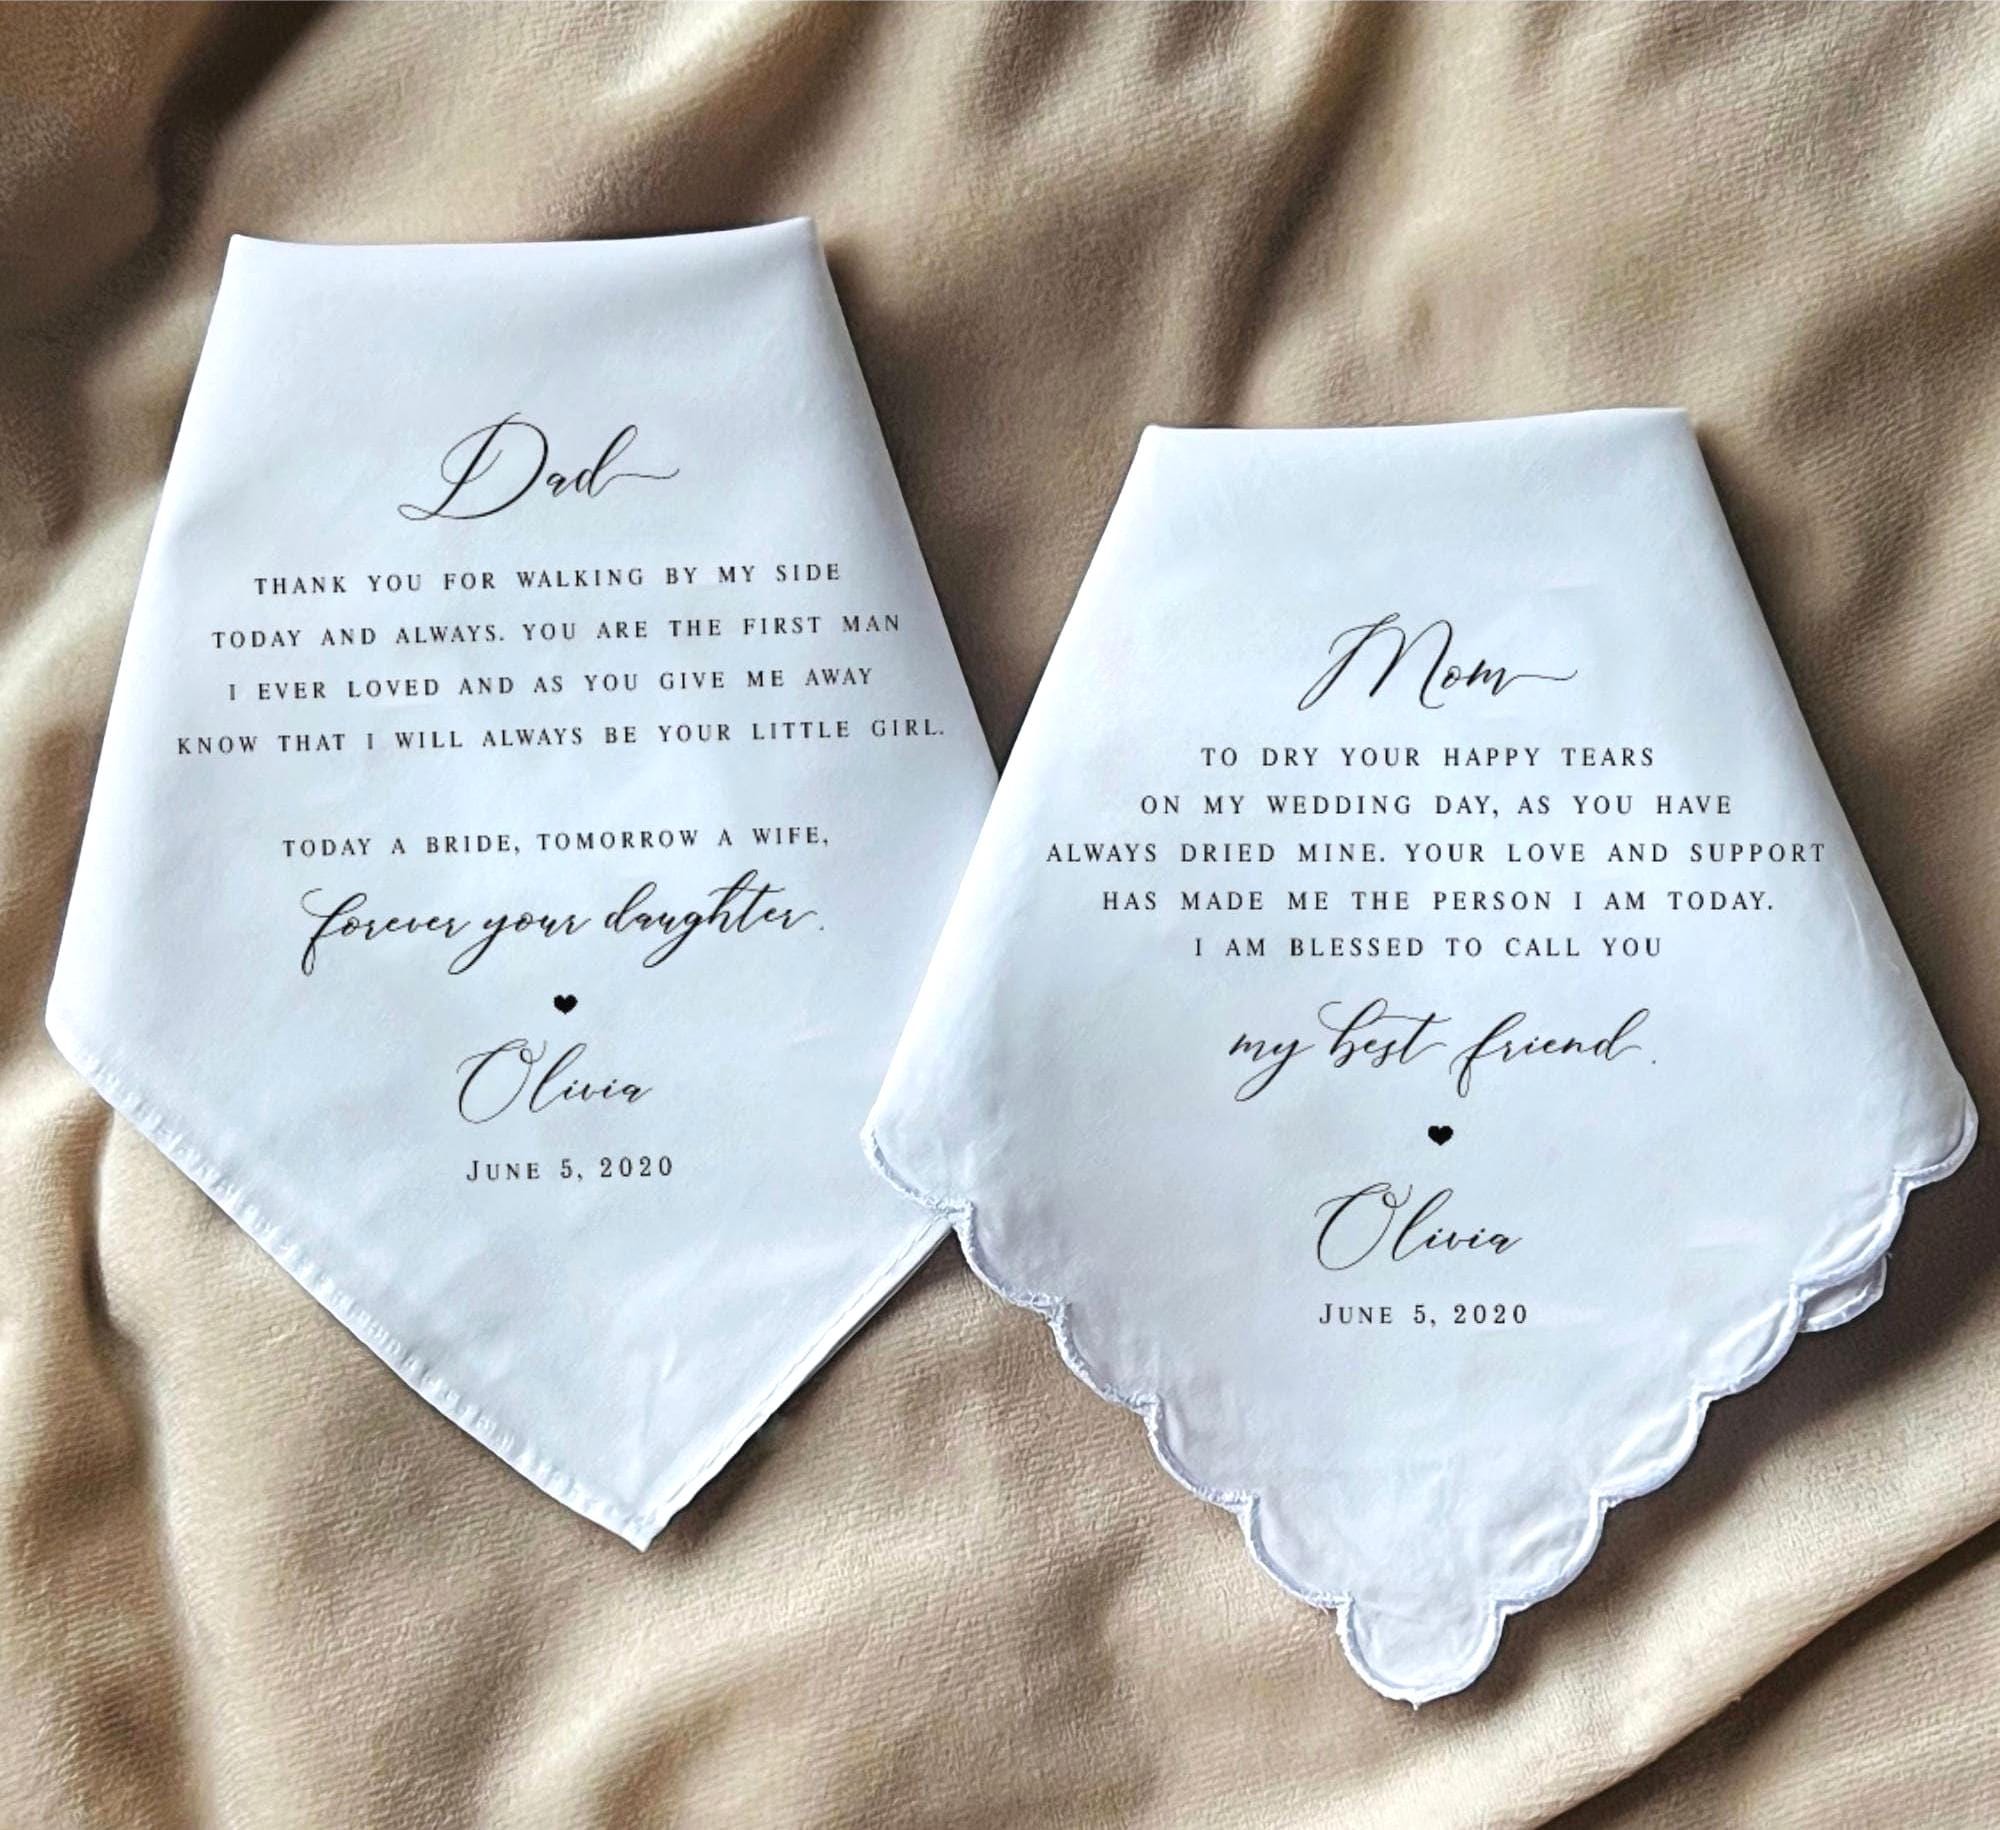 Dad
THANK YOU FOR WALKING BY MY SIDE
TODAY AND ALWAYS. YOU ARE THE FIRST MAN
I EVER LOVED AND AS YOU GIVE ME AWAY
KNOW THAT I WILL ALWAYS BE YOUR LITTLE GIRL.
TODAY A BRIDE, TOMORROW A WIFE,
forever your daughter.
Olivia
JUNE 5, 2020
Mom
TO DRY YOUR HAPPY TEARS
ON MY WEDDING DAY, AS YOU HAVE
ALWAYS DRIED MINE. YOUR LOVE AND SUPPORT
HAS MADE ME THE PERSON I AM TODAY.
I AM BLESSED TO CALL YOU
my best friend.
Olivia
JUNE 5, 2020